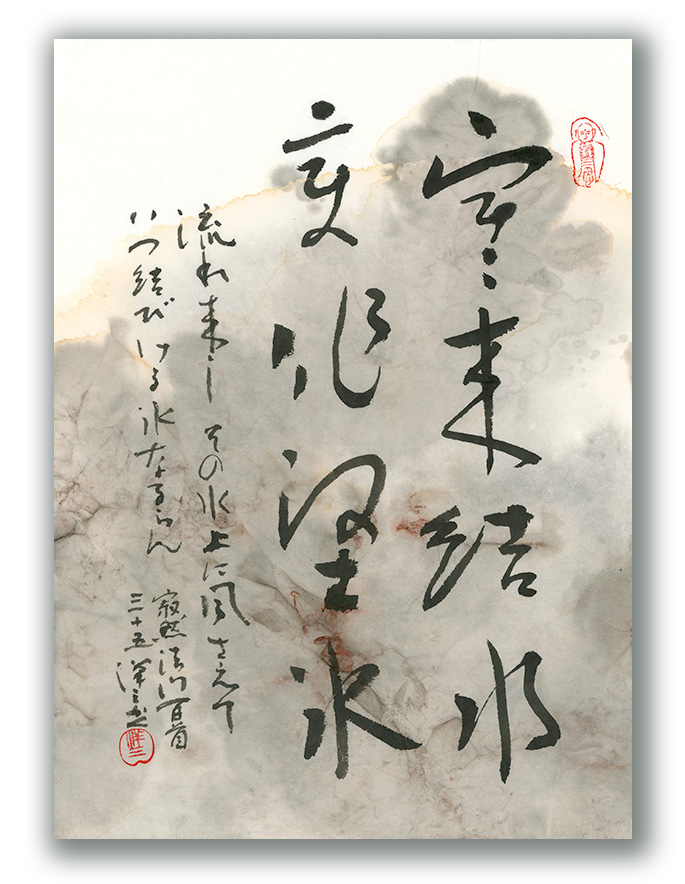 寒来結水
変作堅氷
流れ来し その水上に風さえて
いつ結びける氷なるらん
寂然法門百首
三十五